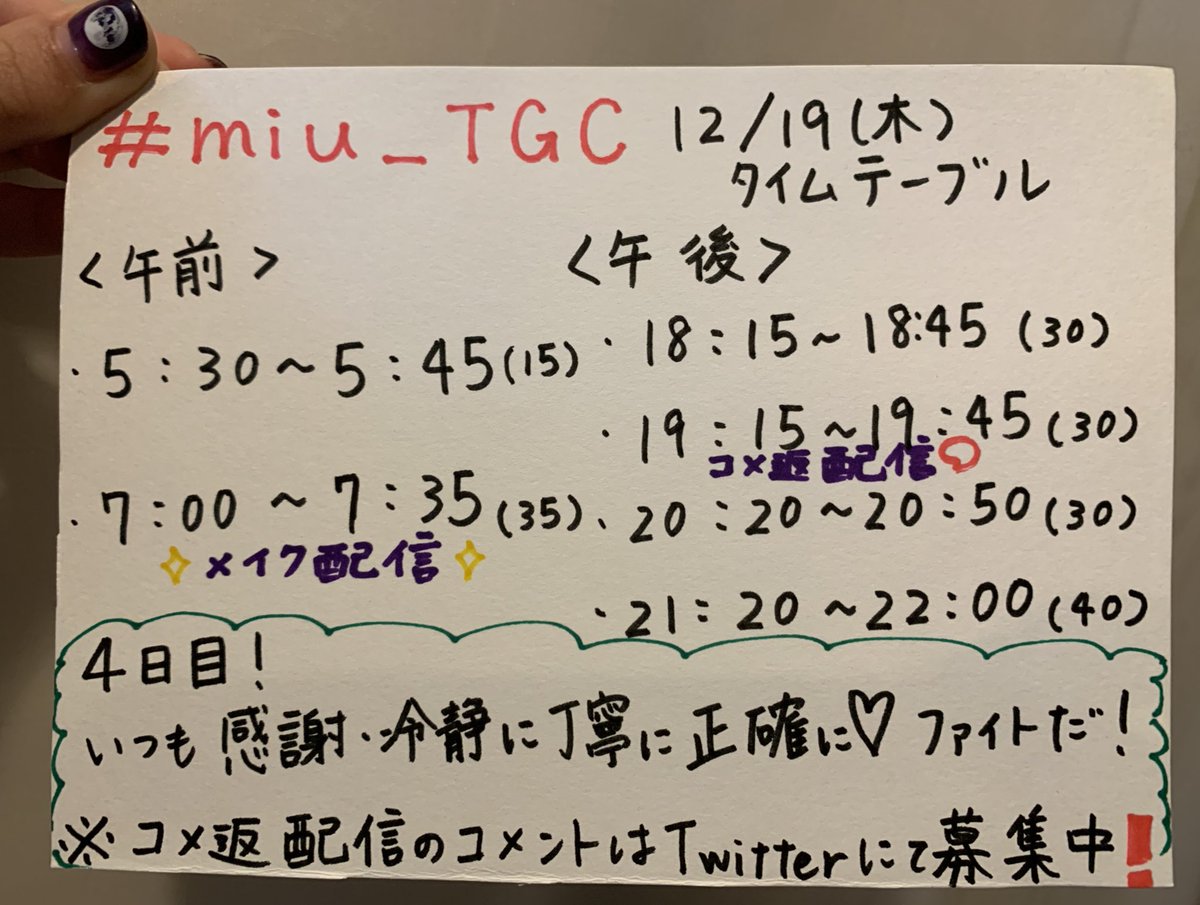 #miu_TGC 12/19(木)
タイムテーブル
<午前>
・5:30～5:45(15)
・7:00～7:35(35)
メイク配信
<午後>
・18:15～18:45(30)
・19:15～19:45(30)
コメ返配信
・20:20～20:50(30)
・21:20～22:00(40)
4日目!
いつも感謝・冷静に丁寧に正確に♡ファイトだ!
※コメ返配信のコメントはTwitterにて募集中!